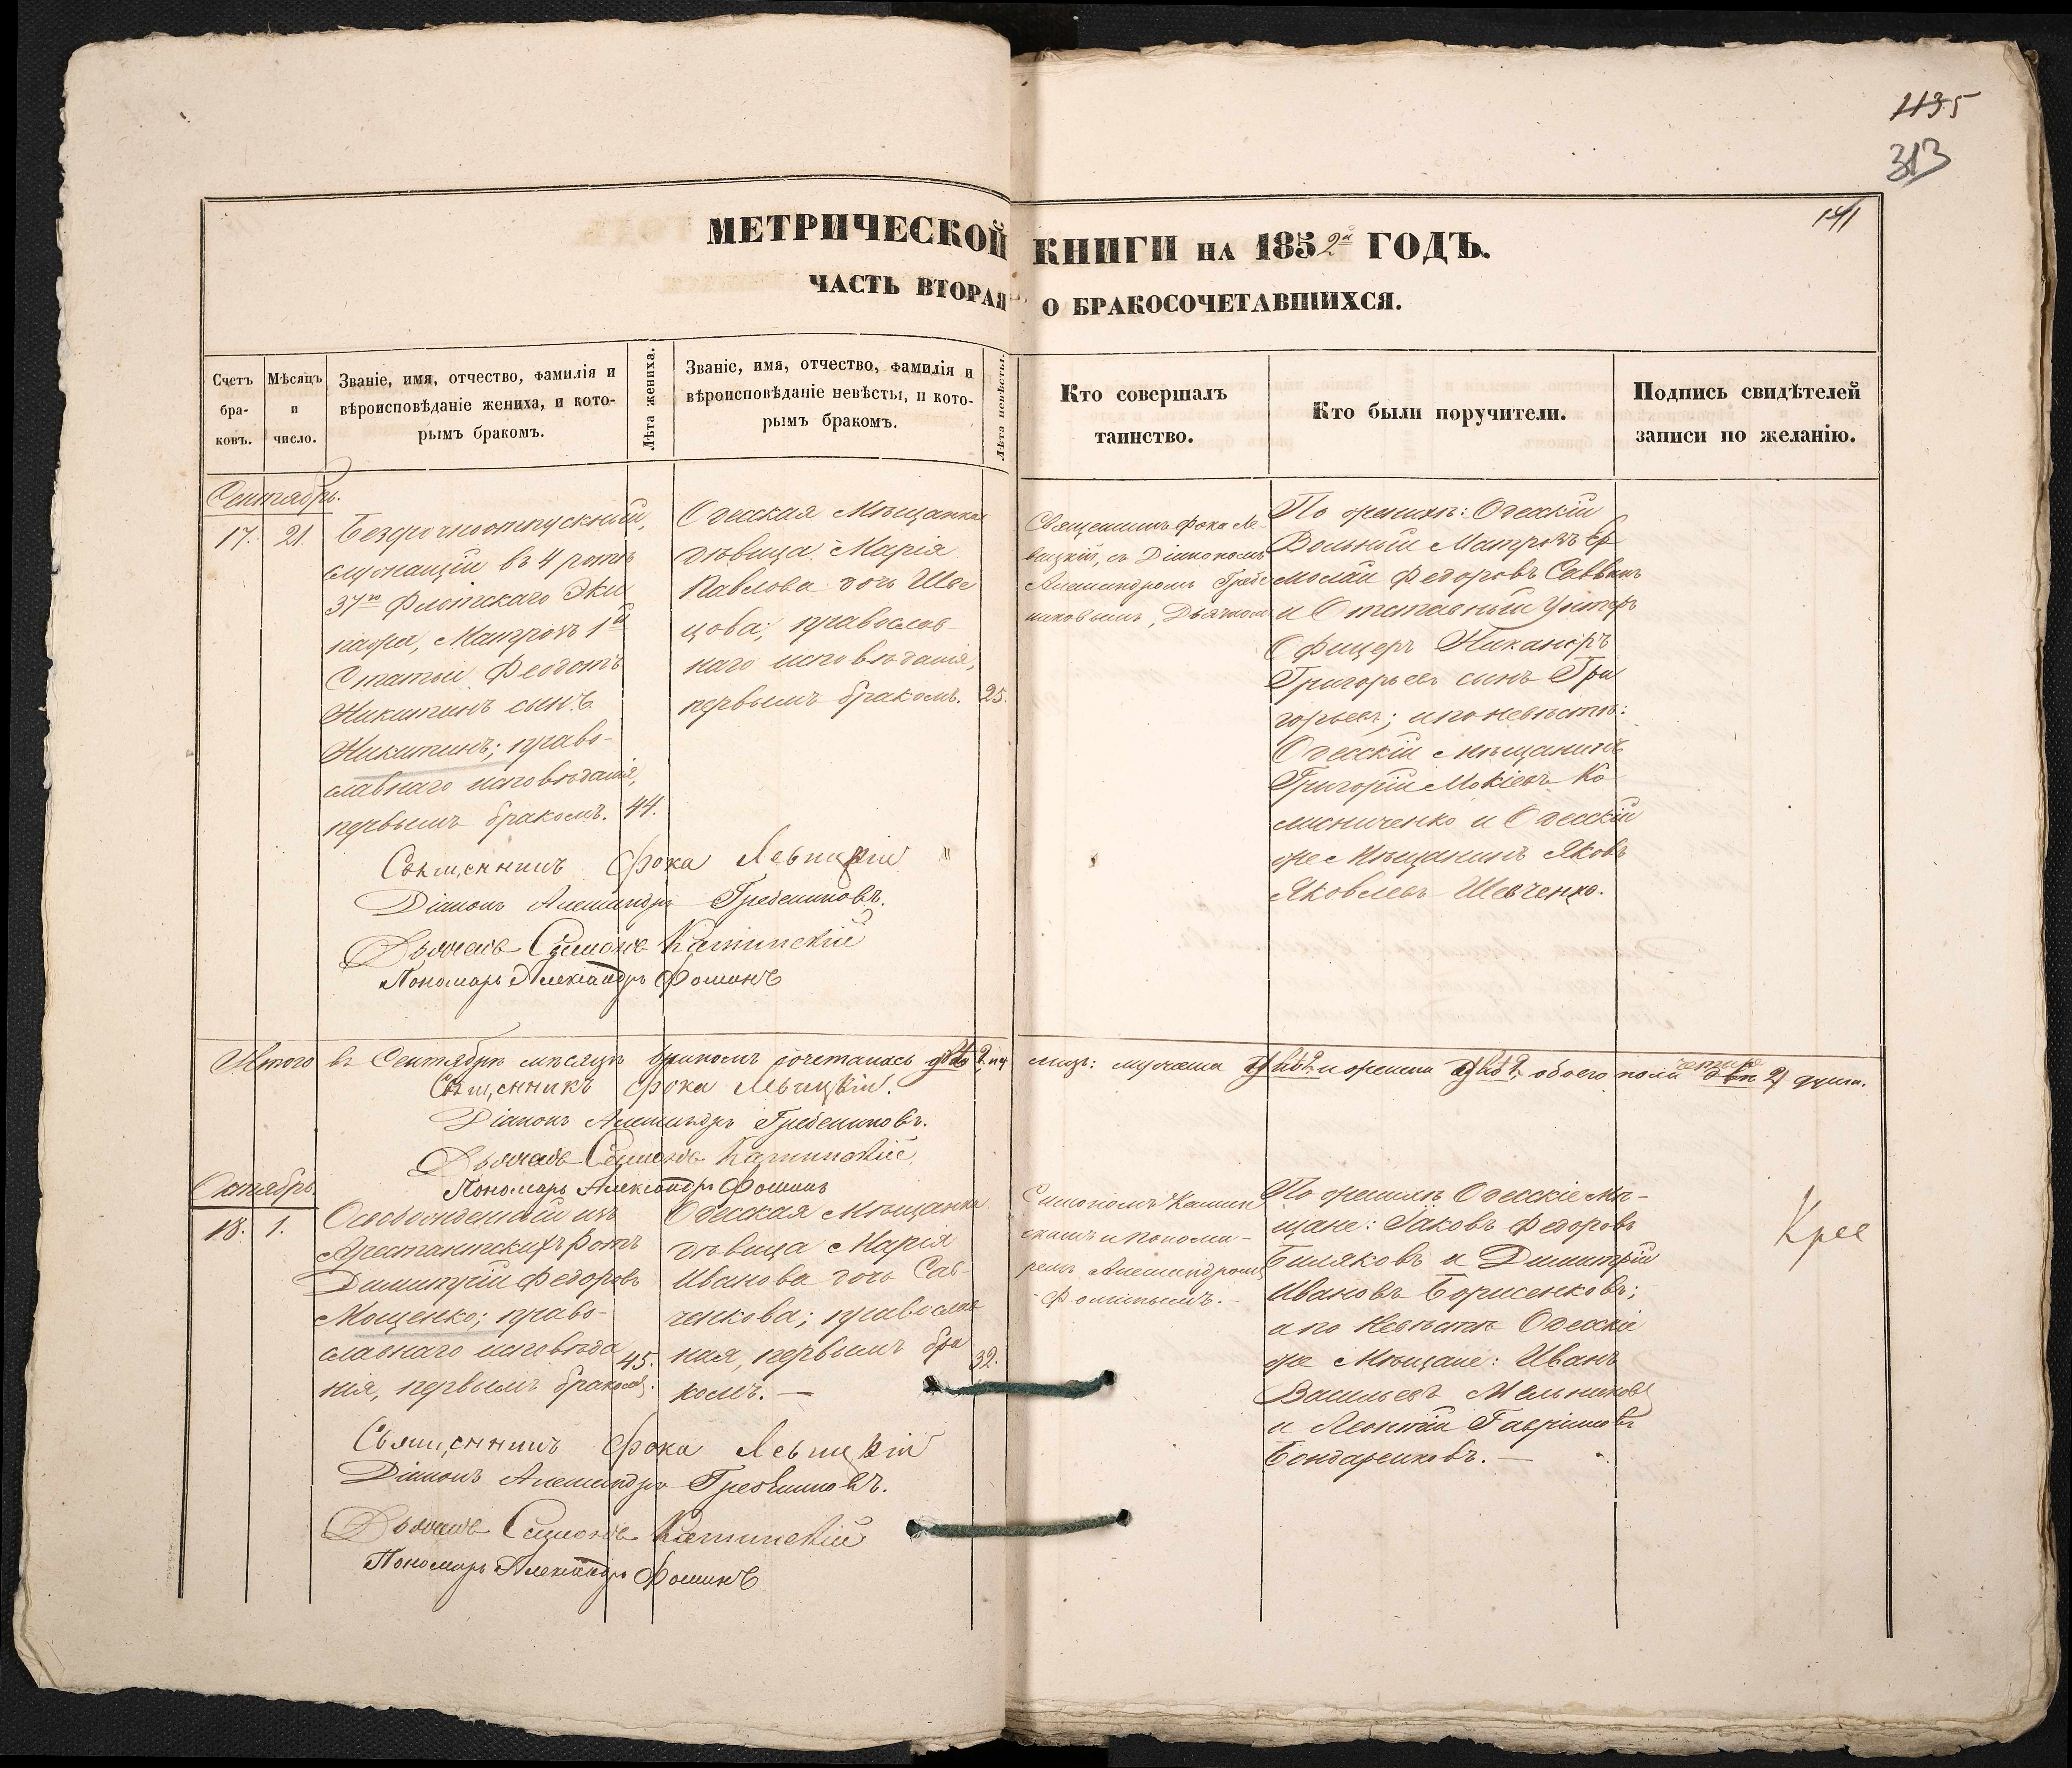 1135
313
141
МЕТРИЧЕСКОЙ КНИГИ НА 1852й ГОДЪ.
ЧАСТЬ ВТОРАЯ О БРАКОСОЧЕТАВШИХСЯ.
Счетъ бра-ковъ.
Мѣсяцъ и число.
Званіе, имя, отчество, фамилія и
вѣроисповѣданіе жениха, и кото-
рымъ бракомъ.
Лѣта жениха.
Званіе, имя, отчество, фамилія и
вѣроисповѣданіе невѣсты, и кото-
рымъ бракомъ.
Лѣта невѣсты.
Кто совершалъ
таинство.
Кто были поручители.
Подпись свидѣтелей
записи по желанію.
Сентябрь.
17. 21.
Безсрочноотпускный,
служащій въ 4 ротѣ
37го Флотскаго Эки
пажа, Матрозъ 1й
Статьи Феодотъ
Никитинъ сынъ
Никитинъ; право-
славнаго исповѣданія,
первымъ бракомъ. 44.
Одесская Мѣщанка
дѣвица Марія
Павлова дочь Шве
цова; православ
наго исповѣданія,
первымъ бракомъ. 25.
Священникъ Фока Ле-
вицкій, съ Діакономъ
Александромъ Гребе
никовымъ, Дьячком
По женихѣ: Одесскій
Вольный Матрозъ Ер
молай Федоровъ Саввинъ
и Отставный Унтеръ
Офицеръ Никаноръ
Григорьевъ сынъ Гри
горьевъ; и по невѣстѣ:
Одесскій Мѣщанинъ
Григорій Мокіевъ Ко
лисниченко и Одесскій
же Мѣщанинъ Яковъ
Яковлевъ Шевченко.
Священникъ Фока Левицкій
Діаконъ Александръ Гребениковъ.
Дьячекъ Сѵмонъ Каминскій
Пономарь Александръ Фоминъ
Итого въ Сентябрѣ мѣсяцѣ бракомъ сочеталось
лицъ: мужеска два 2. и женска двѣ 2. обоего пола четыре 4 души.
Священникъ Фока Левицкій.
Діаконъ Александръ Гребениковъ.
Дьячекъ Сѵмонъ Каминскій
Пономарь Александръ Фоминъ
Октябрь.
18. 1.
Освобожденный изъ
Арестантскихъ Ротъ
Димитрій Федоровъ
Мощенко; право-
славнаго исповѣда
нія, первымъ бракомъ. 45.
Одесская Мѣщанка
дѣвица Марія
Иванова дочь Сав-
ченкова; православ
ная, первымъ бра
комъ. — 32.
Симономъ Камин
скимъ и Понома-
ремъ Александромъ
Фоминымъ. –
По женихѣ Одесскіе Мѣ-
щане: Іаковъ Федоровъ
Биляковъ и Димитрій
Ивановъ Борисенковъ;
а по Невѣстѣ Одесскіе
же Мѣщане: Иванъ
Васильевъ Мельниковъ
и Леонтій Гавриловъ
Бондаренковъ. —
Священникъ Фока Левицкій
Діаконъ Александръ Гребениковъ.
Дьячекъ Сѵмонъ Каминскій
Пономарь Александръ Фоминъ